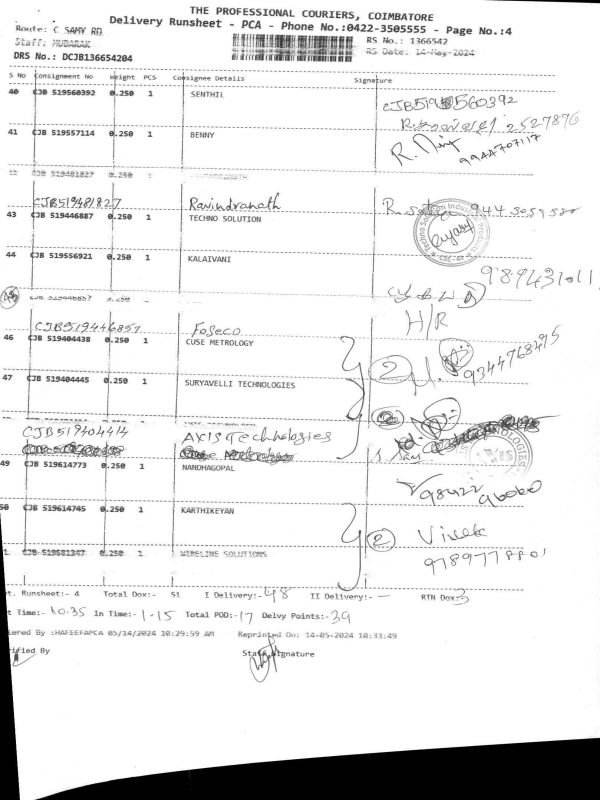 THE PROFESSIONAL COURIERS, COIMBATORE
Delivery Runsheet - PCA - Phone No.:0422-3505555 - Page No.:4
Route: C SAMY RD
RS No.: 1366542
Staff: MUBARAK
RS Date: 14-May-2024
DRS No.: DCJB136654204
S No Consignment No Weight PCS Consignee Details Signature
40 CJB 519560392 0.250 1 SENTHIL
CJB519560392
2527876
41 CJB 519557114 0.250 1 BENNY
9944707117
CJB 519481827
CJB519481827 Ravindranath
43 CJB 519446887 0.250 1 TECHNO SOLUTION
44 CJB 519556921 0.250 1 KALAIVANI
45
CJB519446857 Foseco
H/R
46 CJB 519404438 0.250 1 CUSE METROLOGY
2
9344768295
47 CJB 519404445 0.250 1 SURYAVELLI TECHNOLOGIES
CJB519404414 AXIS Technologies
49 CJB 519614773 0.250 1 NANDHAGOPAL
98422
50 CJB 519614745 0.250 1 KARTHIKEYAN
2
CJB 519581347 0.250 1 WIRELINE SOLUTIONS
9789778801
t. Runsheet:- 4 Total Dox:- 51 I Delivery:- 48 II Delivery:- — RTN Dox:- 3
t Time:- 10.35 In Time:- 1-15 Total POD:- 17 Delvy Points:- 39
ered By :HAFEEFAPCA 05/14/2024 10:29:59 AM Reprinted On: 14-05-2024 10:33:49
rified By Staff Signature